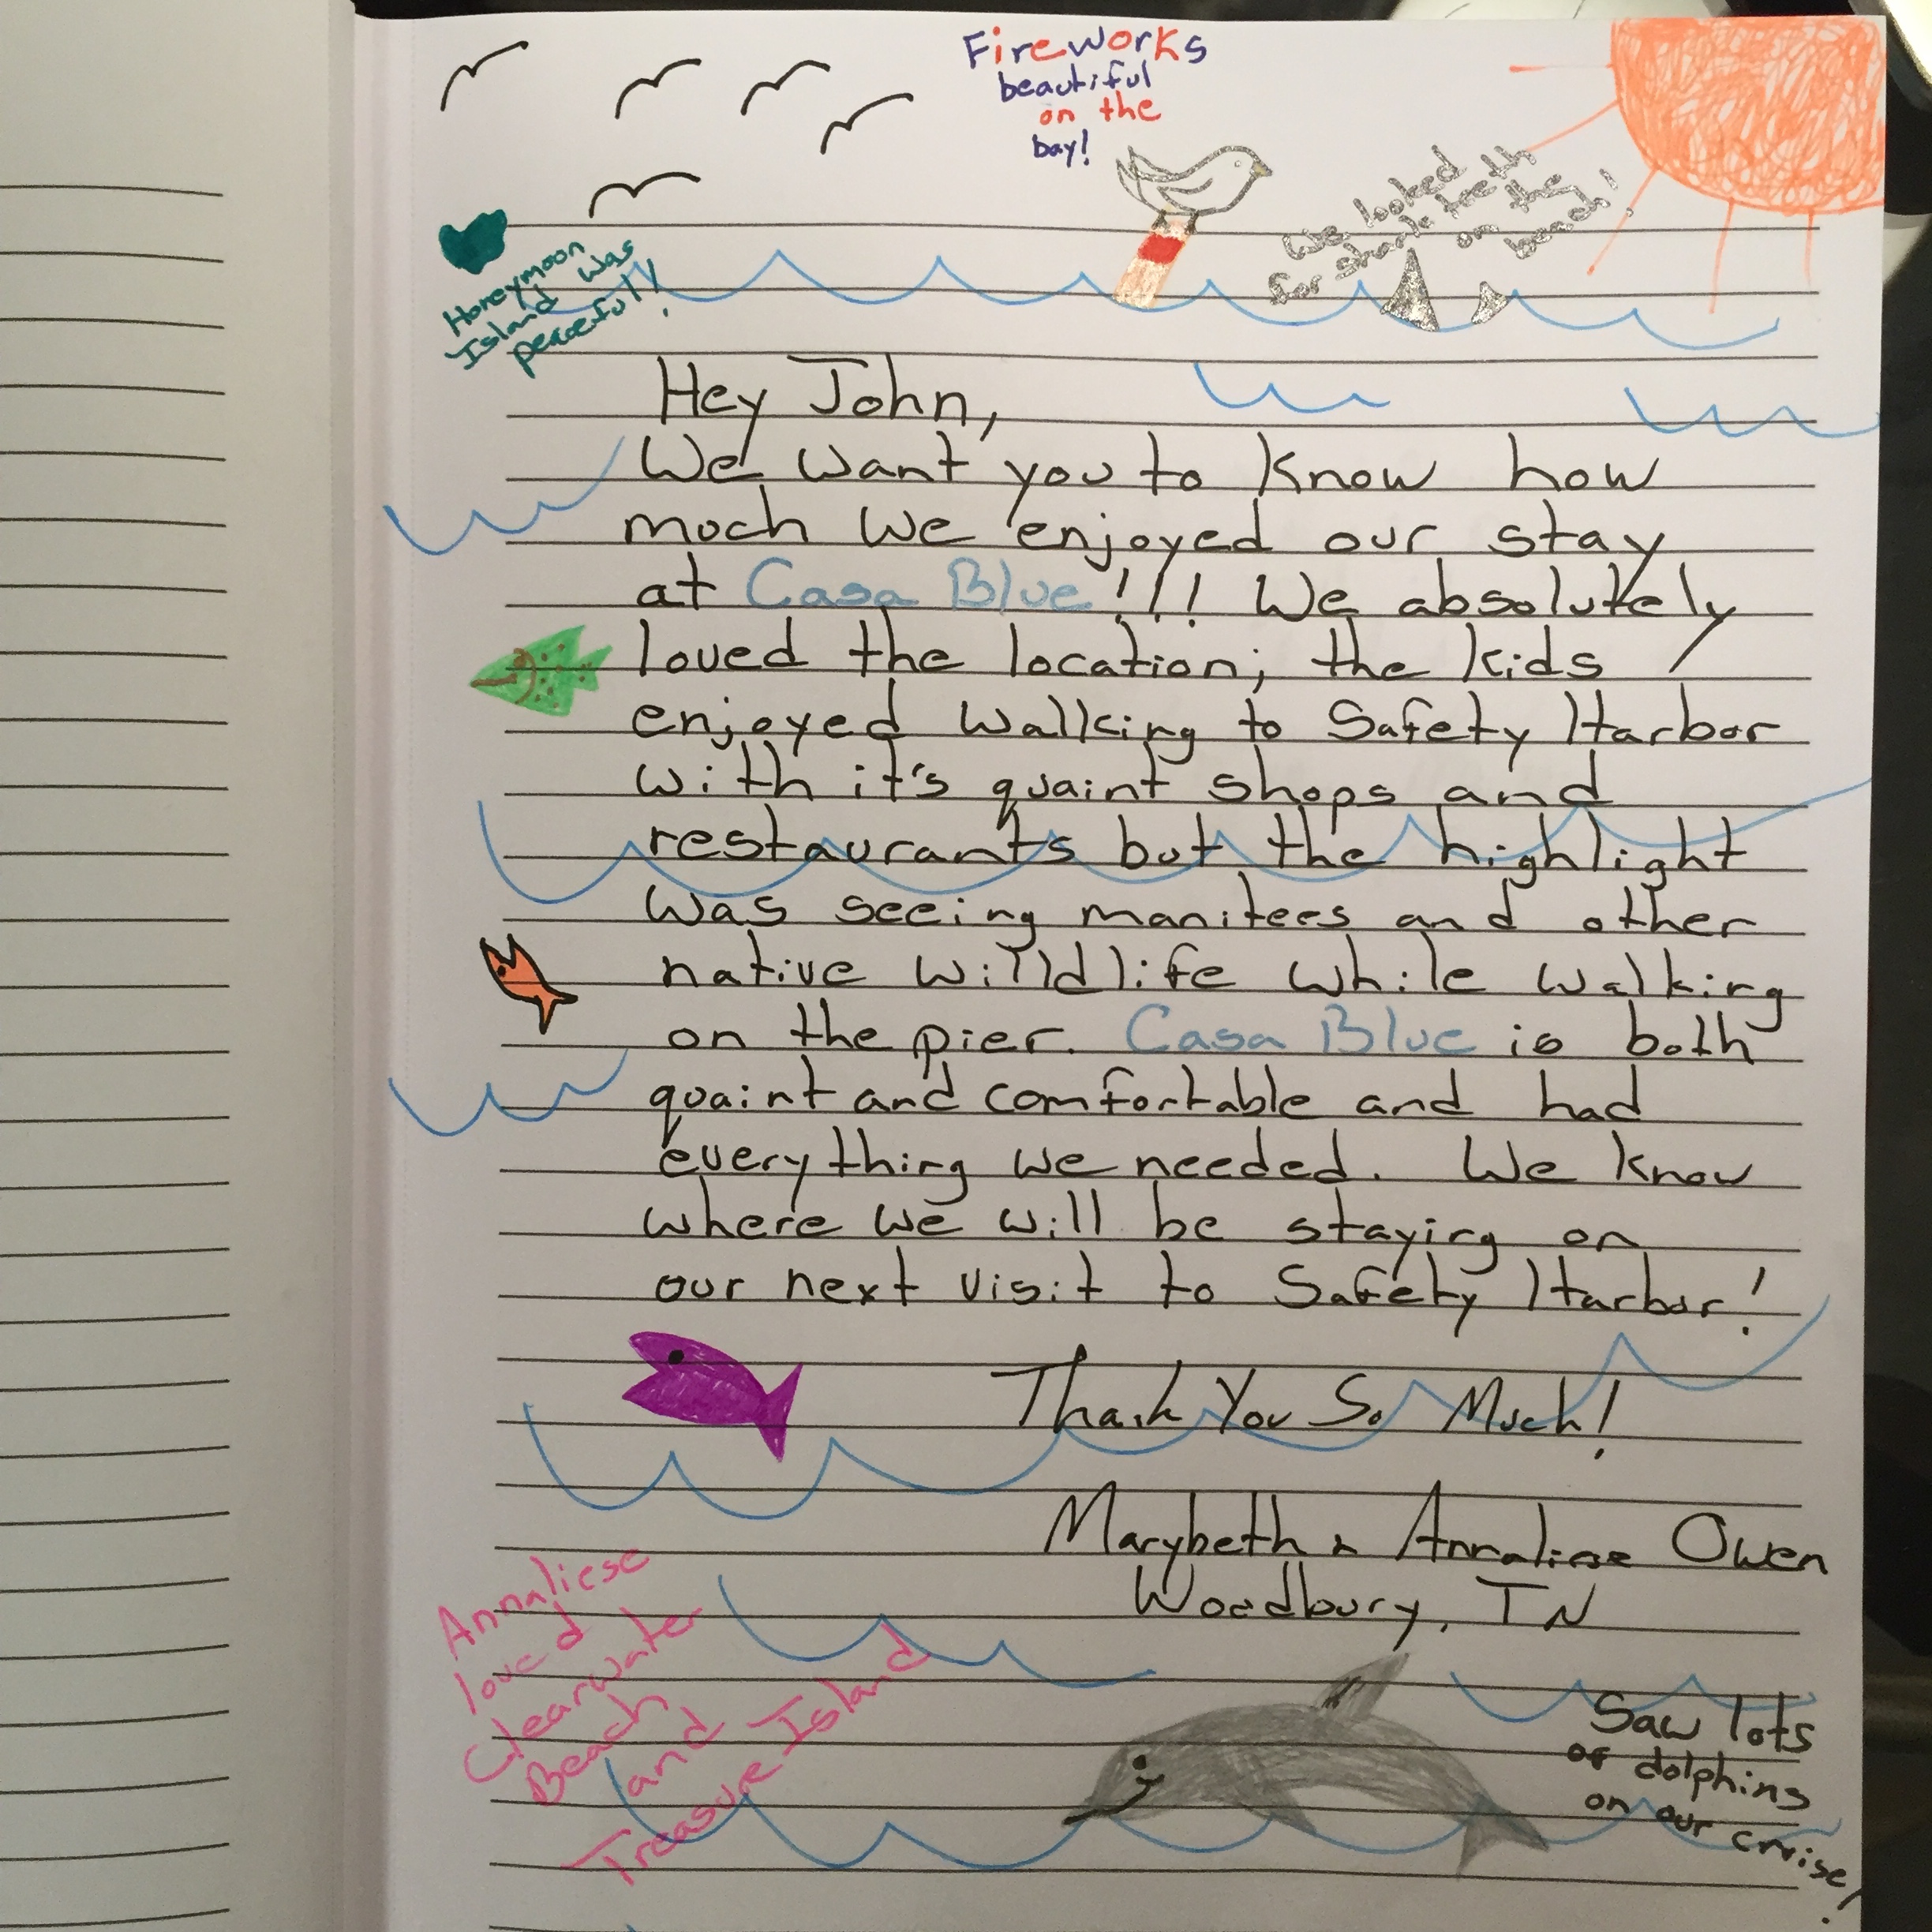 Fireworks
beautiful
on the
bay!
We looked
for shark teeth
on the
beach!
Honeymoon
Island was
peaceful!
Hey John,
We want you to know how
much we enjoyed our stay
at Casa Blue!!! We absolutely
loved the location; the kids
enjoyed walking to Safety Harbor
with it's quaint shops and
restaurants but the highlight
was seeing manitees and other
native willdlife while walking
on the pier. Casa Blue is both
quaint and comfortable and had
everything we needed. We know
where we will be staying on
our next visit to Safety Harbor!
Thank You So Much!
Marybeth & Annaliese Owen
Woodbury, TN
Annaliese
loved
Clearwater
Beach
and
Treasure Island
Saw lots
of dolphins
on our cruise!